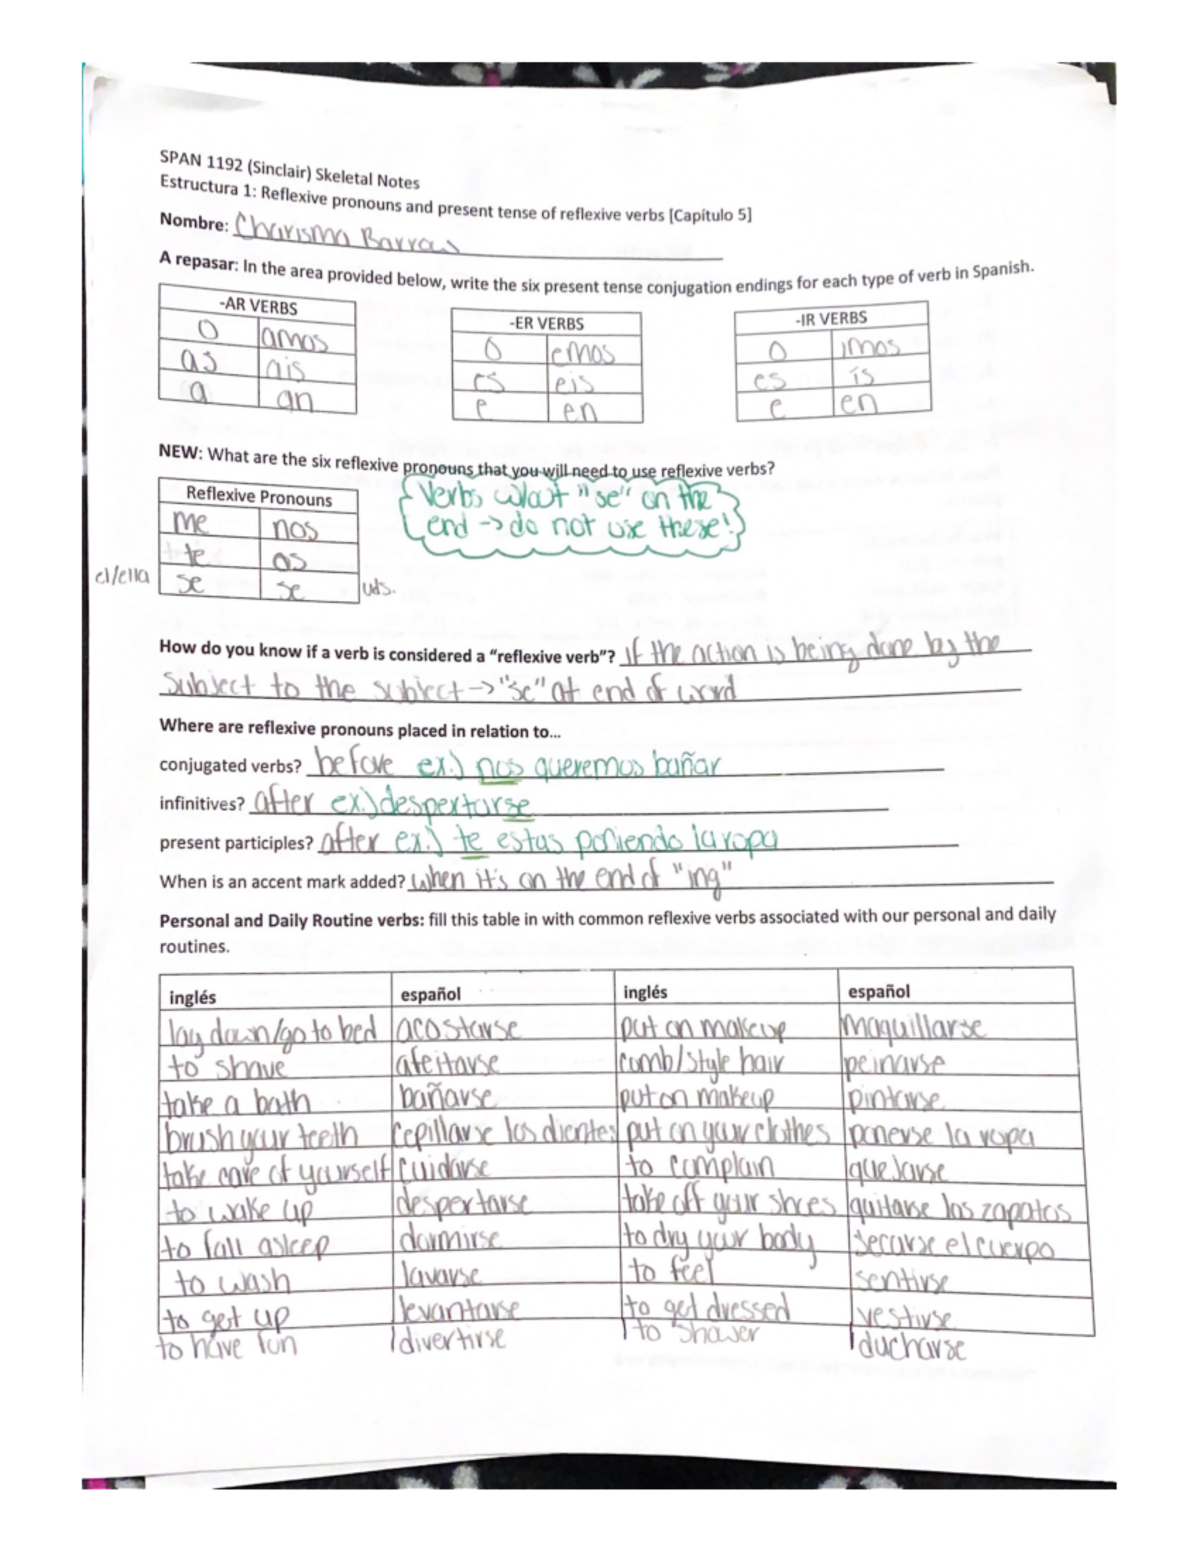 SPAN 1192 (Sinclair) Skeletal Notes
Estructura 1: Reflexive pronouns and present tense of reflexive verbs [Capítulo 5]
Nombre: Charisma Barras
A repasar: In the area provided below, write the six present tense conjugation endings for each type of verb in Spanish.
-AR VERBS
o amos
as ais
a an
-ER VERBS
o emos
es eis
e en
-IR VERBS
o imos
es ís
e en
NEW: What are the six reflexive pronouns that you will need to use reflexive verbs?
Reflexive Pronouns
me nos
te os
el/ella se se uds.
Verbs w/out "se" on the
end → do not use these!
How do you know if a verb is considered a “reflexive verb”? if the action is being done by the
subject to the subject → "se" at end of word
Where are reflexive pronouns placed in relation to...
conjugated verbs? before ex.) nos queremos bañar
infinitives? after ex.) despertarse
present participles? after ex.) te estas poniendo la ropa
When is an accent mark added? when it's on the end of "ing"
Personal and Daily Routine verbs: fill this table in with common reflexive verbs associated with our personal and daily
routines.
inglés español inglés español
lay down/go to bed acostarse put on makeup maquillarse
to shave afeitarse comb/style hair peinarse
take a bath bañarse put on makeup pintarse
brush your teeth cepillarse los dientes put on your clothes ponerse la ropa
take care of yourself cuidarse to complain quejarse
to wake up despertarse take off your shoes quitarse los zapatos
to fall asleep dormirse to dry your body secarse el cuerpo
to wash lavarse to feel sentirse
to get up levantarse to get dressed vestirse
to have fun divertirse to shower ducharse